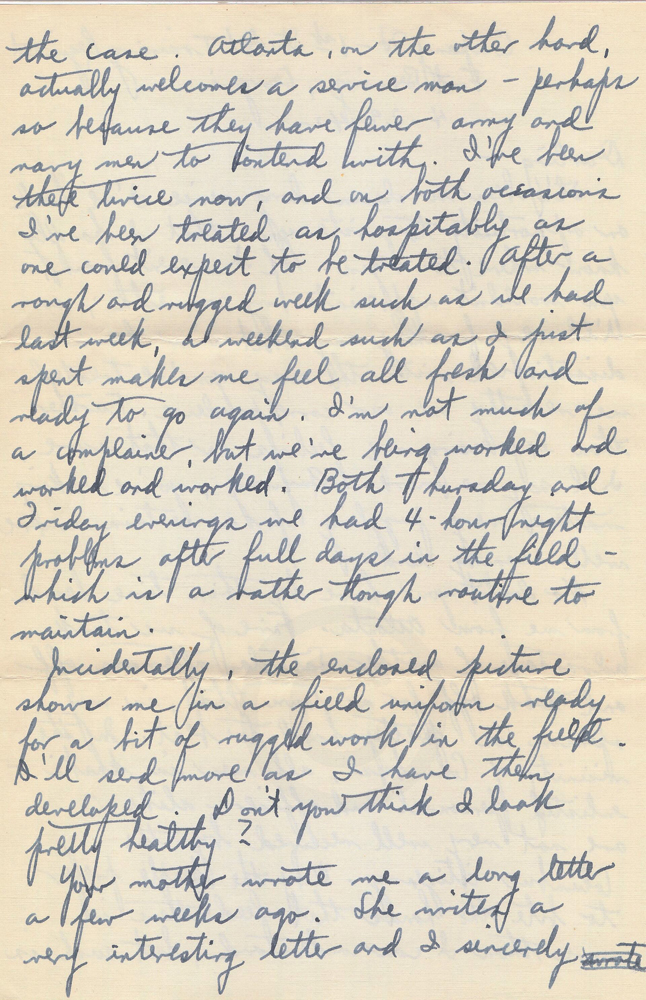 the case. Atlanta, on the other hand,
actually welcomes a service man – perhaps
so because they have fewer army and
navy men to contend with. I've been
there twice now, and on both occasions
I've been treated as hospitably as
one could expect to be treated. After a
rough and rugged week such as we had
last week, a weekend such as I just
spent makes me feel all fresh and
ready to go again. I'm not much of
a complainer, but we're being worked and
worked and worked. Both Thursday and
Friday evenings we had 4-hour night
problems after full days in the field –
which is a rather tough routine to
maintain.
Incidentally, the enclosed picture
shows me in a field uniform ready
for a bit of rugged work in the field.
I'll send more as I have them
developed. Don't you think I look
pretty healthy?
Your mother wrote me a long letter
a few weeks ago. She writes a
very interesting letter and I sincerely wrote